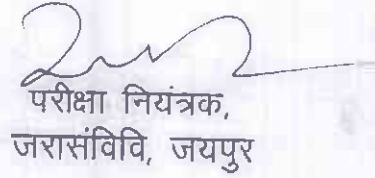 परीक्षा नियंत्रक,
जरासंविवि, जयपुर